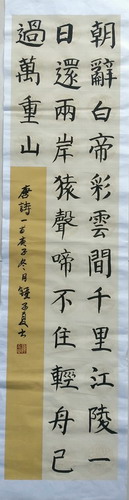 朝辭白帝彩雲間千里江陵一
日還兩岸猿聲啼不住輕舟已
過萬重山
唐詩一首庚子冬月